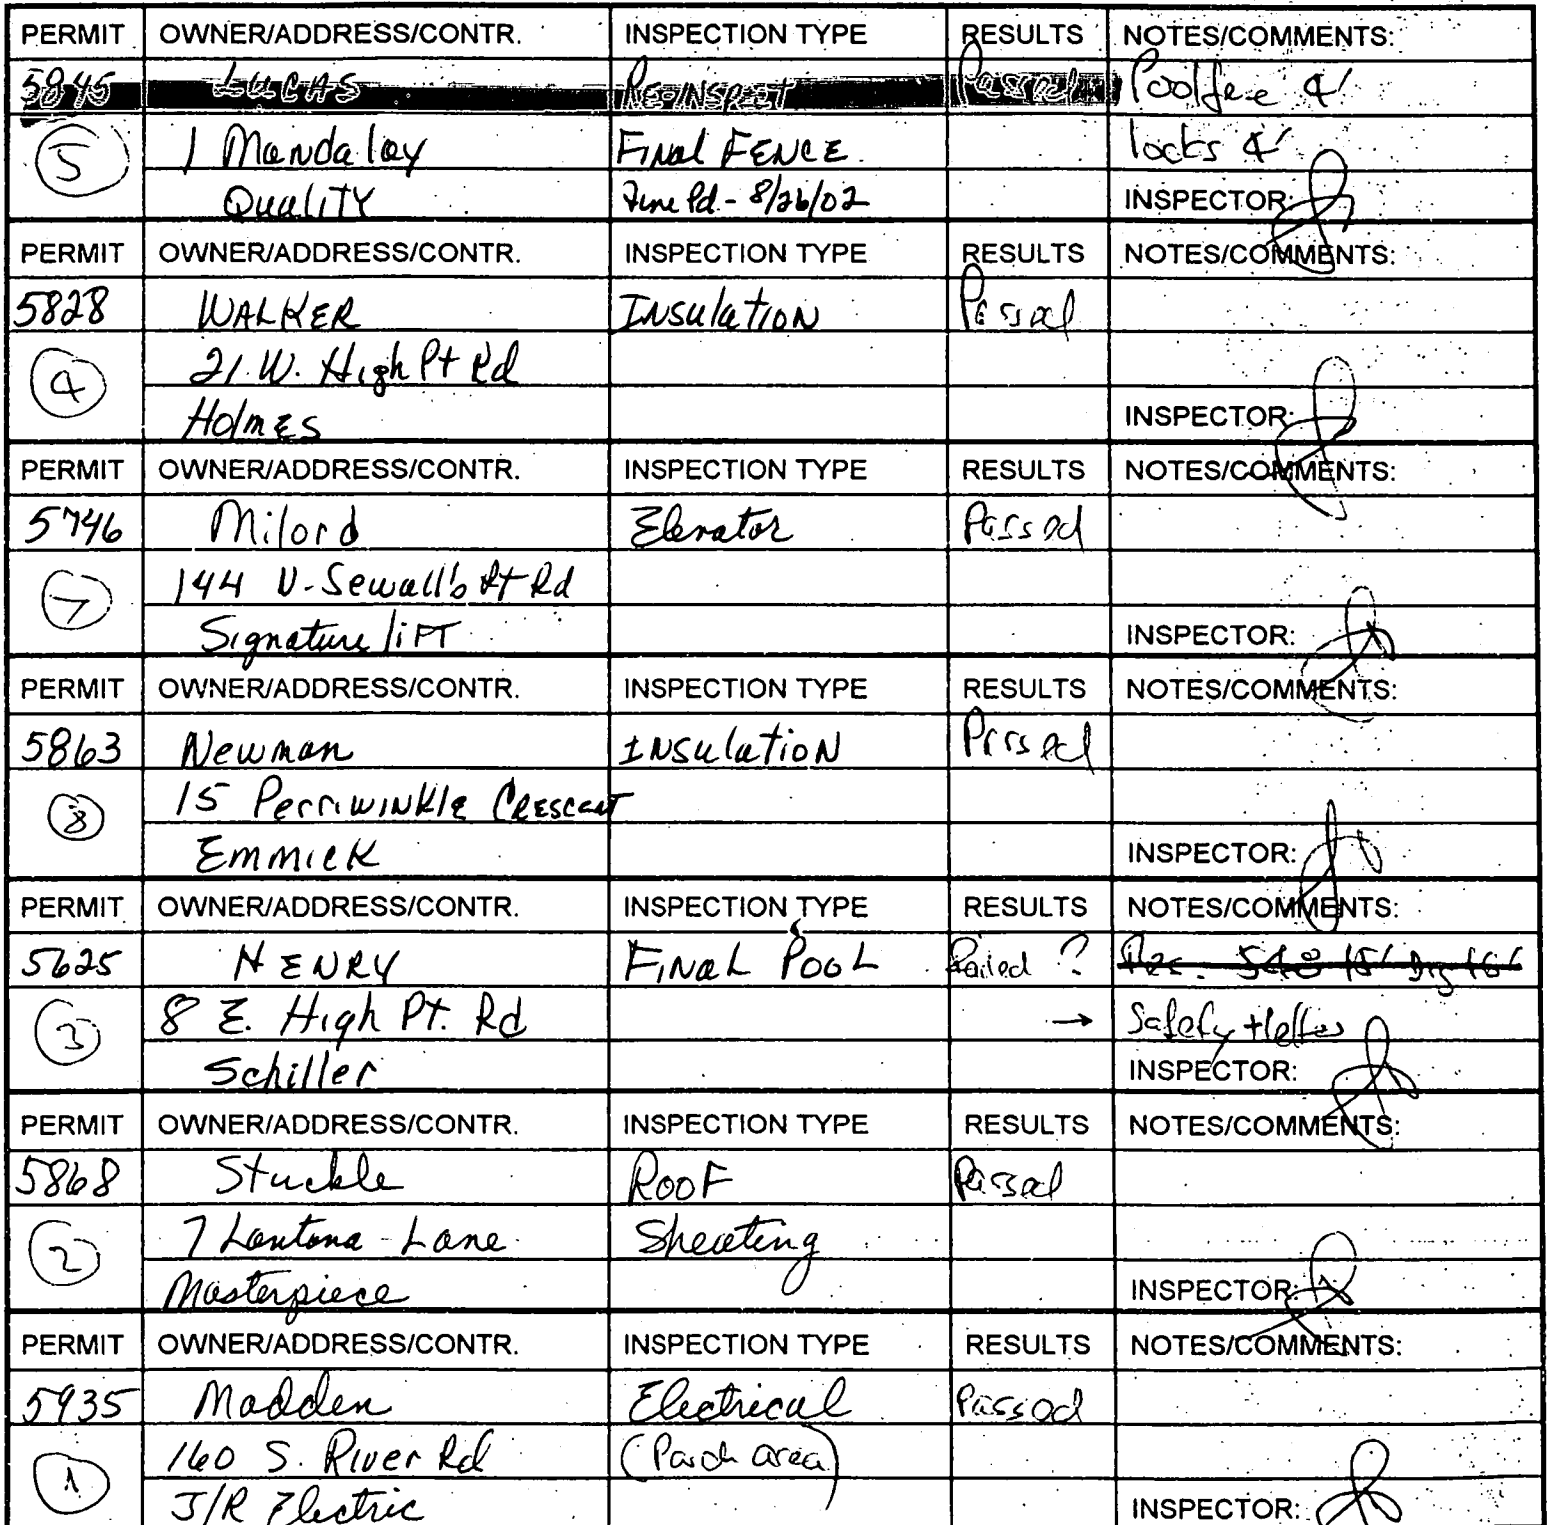 PERMIT OWNER/ADDRESS/CONTR. INSPECTION TYPE RESULTS NOTES/COMMENTS:
5845 LUCAS RE-INSPECT Passed
5 1 Mandalay FINAL FENCE locks
QUALITY Pd - 8/26/02 INSPECTOR:
PERMIT OWNER/ADDRESS/CONTR. INSPECTION TYPE RESULTS NOTES/COMMENTS:
5828 WALKER INSulatION Passed
4 21 W. High Pt Rd
HolmEs INSPECTOR:
PERMIT OWNER/ADDRESS/CONTR. INSPECTION TYPE RESULTS NOTES/COMMENTS:
5746 Milord Elevator Passed
7 144 N. Sewall's Pt Rd
Signature liFT INSPECTOR:
PERMIT OWNER/ADDRESS/CONTR. INSPECTION TYPE RESULTS NOTES/COMMENTS:
5863 Newman INSulatioN Passed
8 15 PerriwiNKle CRESCENT
EmmicK INSPECTOR:
PERMIT OWNER/ADDRESS/CONTR. INSPECTION TYPE RESULTS NOTES/COMMENTS:
5625 HENRY FINAL POOL Failed ?
3 8 E. High Pt. Rd → Safety
Schiller INSPECTOR:
PERMIT OWNER/ADDRESS/CONTR. INSPECTION TYPE RESULTS NOTES/COMMENTS:
5868 Stuckle ROOF Passed
2 7 Lantana Lane Sheating
Masterpiece INSPECTOR:
PERMIT OWNER/ADDRESS/CONTR. INSPECTION TYPE RESULTS NOTES/COMMENTS:
5935 Madden Electrical Passed
1 160 S. River Rd (Porch area)
J/R Electric INSPECTOR: